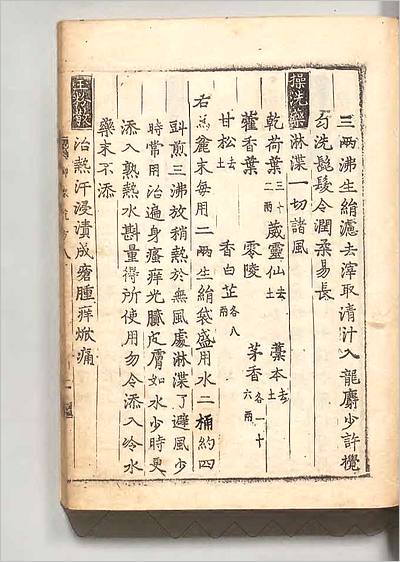 三兩沸生絹濾去滓取清汁入龍麝少許攪
勻洗髭髮令潤柔易長
操洗藥 淋渫一切諸風
乾荷葉三十二兩 葳靈仙去土 藁本去土
藿香葉 零陵 茅香各一十六兩
甘松去土 香白芷各八
右爲麄末每用二兩生絹袋盛用水二桶約四
㪷煎三沸放稍熱於無風處淋渫了避風少
時常用治遍身瘙痒光膩皮膚如水少時更
添入熟熱水斟量得所使用勿令添入冷水
藥末不添
玉粉散 治熱汗浸漬成瘡腫痒焮痛